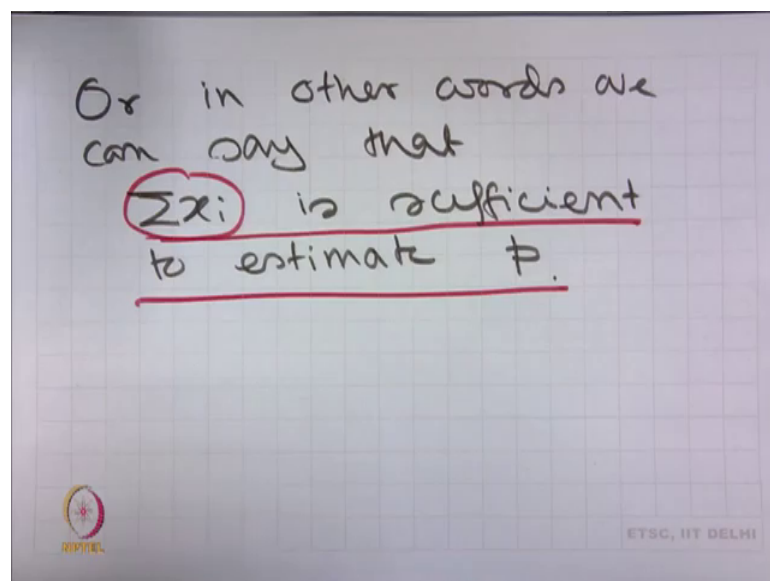 Or in other words we
can say that
Σxi is sufficient
to estimate p.
NPTEL
ETSC, IIT DELHI